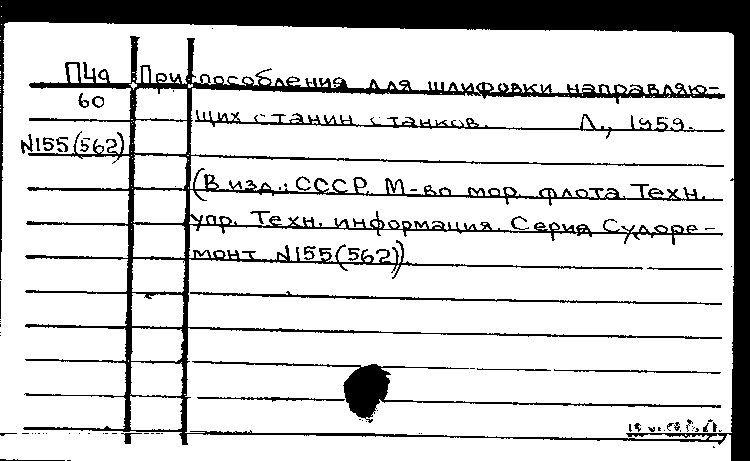 П49 Приспособления для шлифовки направляю-
60 щих станин станков. Л., 1959.
N155(562)
(В изд.: СССР. М-во мор. флота. Техн.
упр. Техн. информация. Серия Судоре-
монт N155(562)).